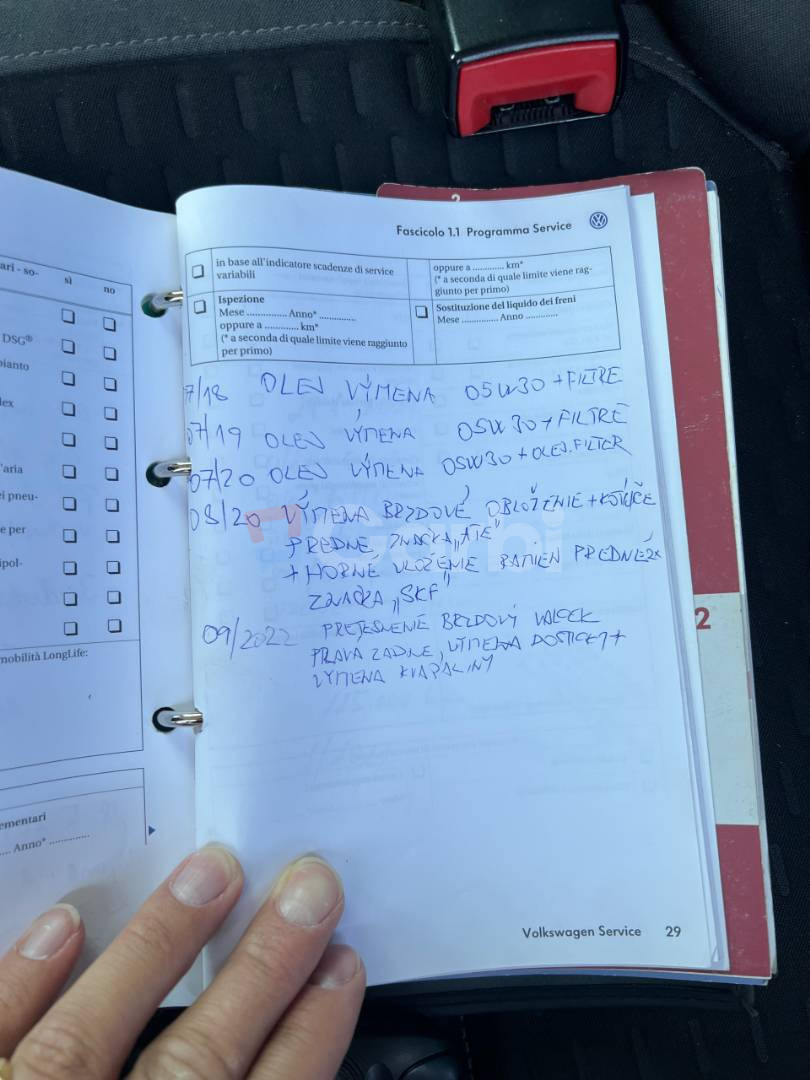 2
Fascicolo 1.1 Programma Service
ari - so-
sì
no
DSG®
pianto
lex
'aria
ei pneu-
e per
ipol-
mobilità LongLife:
ementari
.... Anno* ..............
in base all'indicatore scadenze di service
variabili
oppure a ............ km*
(* a seconda di quale limite viene rag-
giunto per primo)
Ispezione
Mese ............... Anno* ..............
oppure a ............ km*
(* a seconda di quale limite viene raggiunto
per primo)
Sostituzione del liquido dei freni
Mese ............. Anno .............
7/18 OLEJ VÝMENA 05W30 + FILTRE
07/19 OLEJ VÝMENA 05W30 + FILTRE
07/20 OLEJ VÝMENA 05W30 + OLEJ. FILTER
08/20 VÝMENA BRZDOVÉ OBLOŽENIE + KOTÚČE
PREDNE, ZNAČKA „ATE"
+ HORNE ULOŽENIE RAMIEN PREDNÉ 2x
ZNAČKA „SKF"
09/2022 PRETESNENIE BRZDOVÝ VALČEK
PRAVA ZADNE, VÝMENA DOSTIČKY +
VÝMENA KVAPALINY
Garbi
2
Volkswagen Service 29